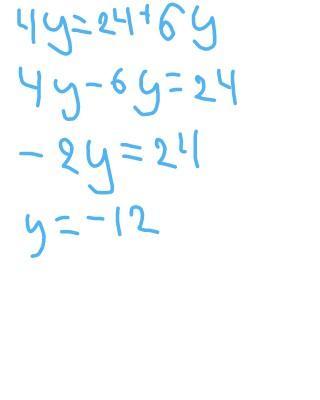 4y=24+6y
4y-6y=24
-2y=24
y=-12